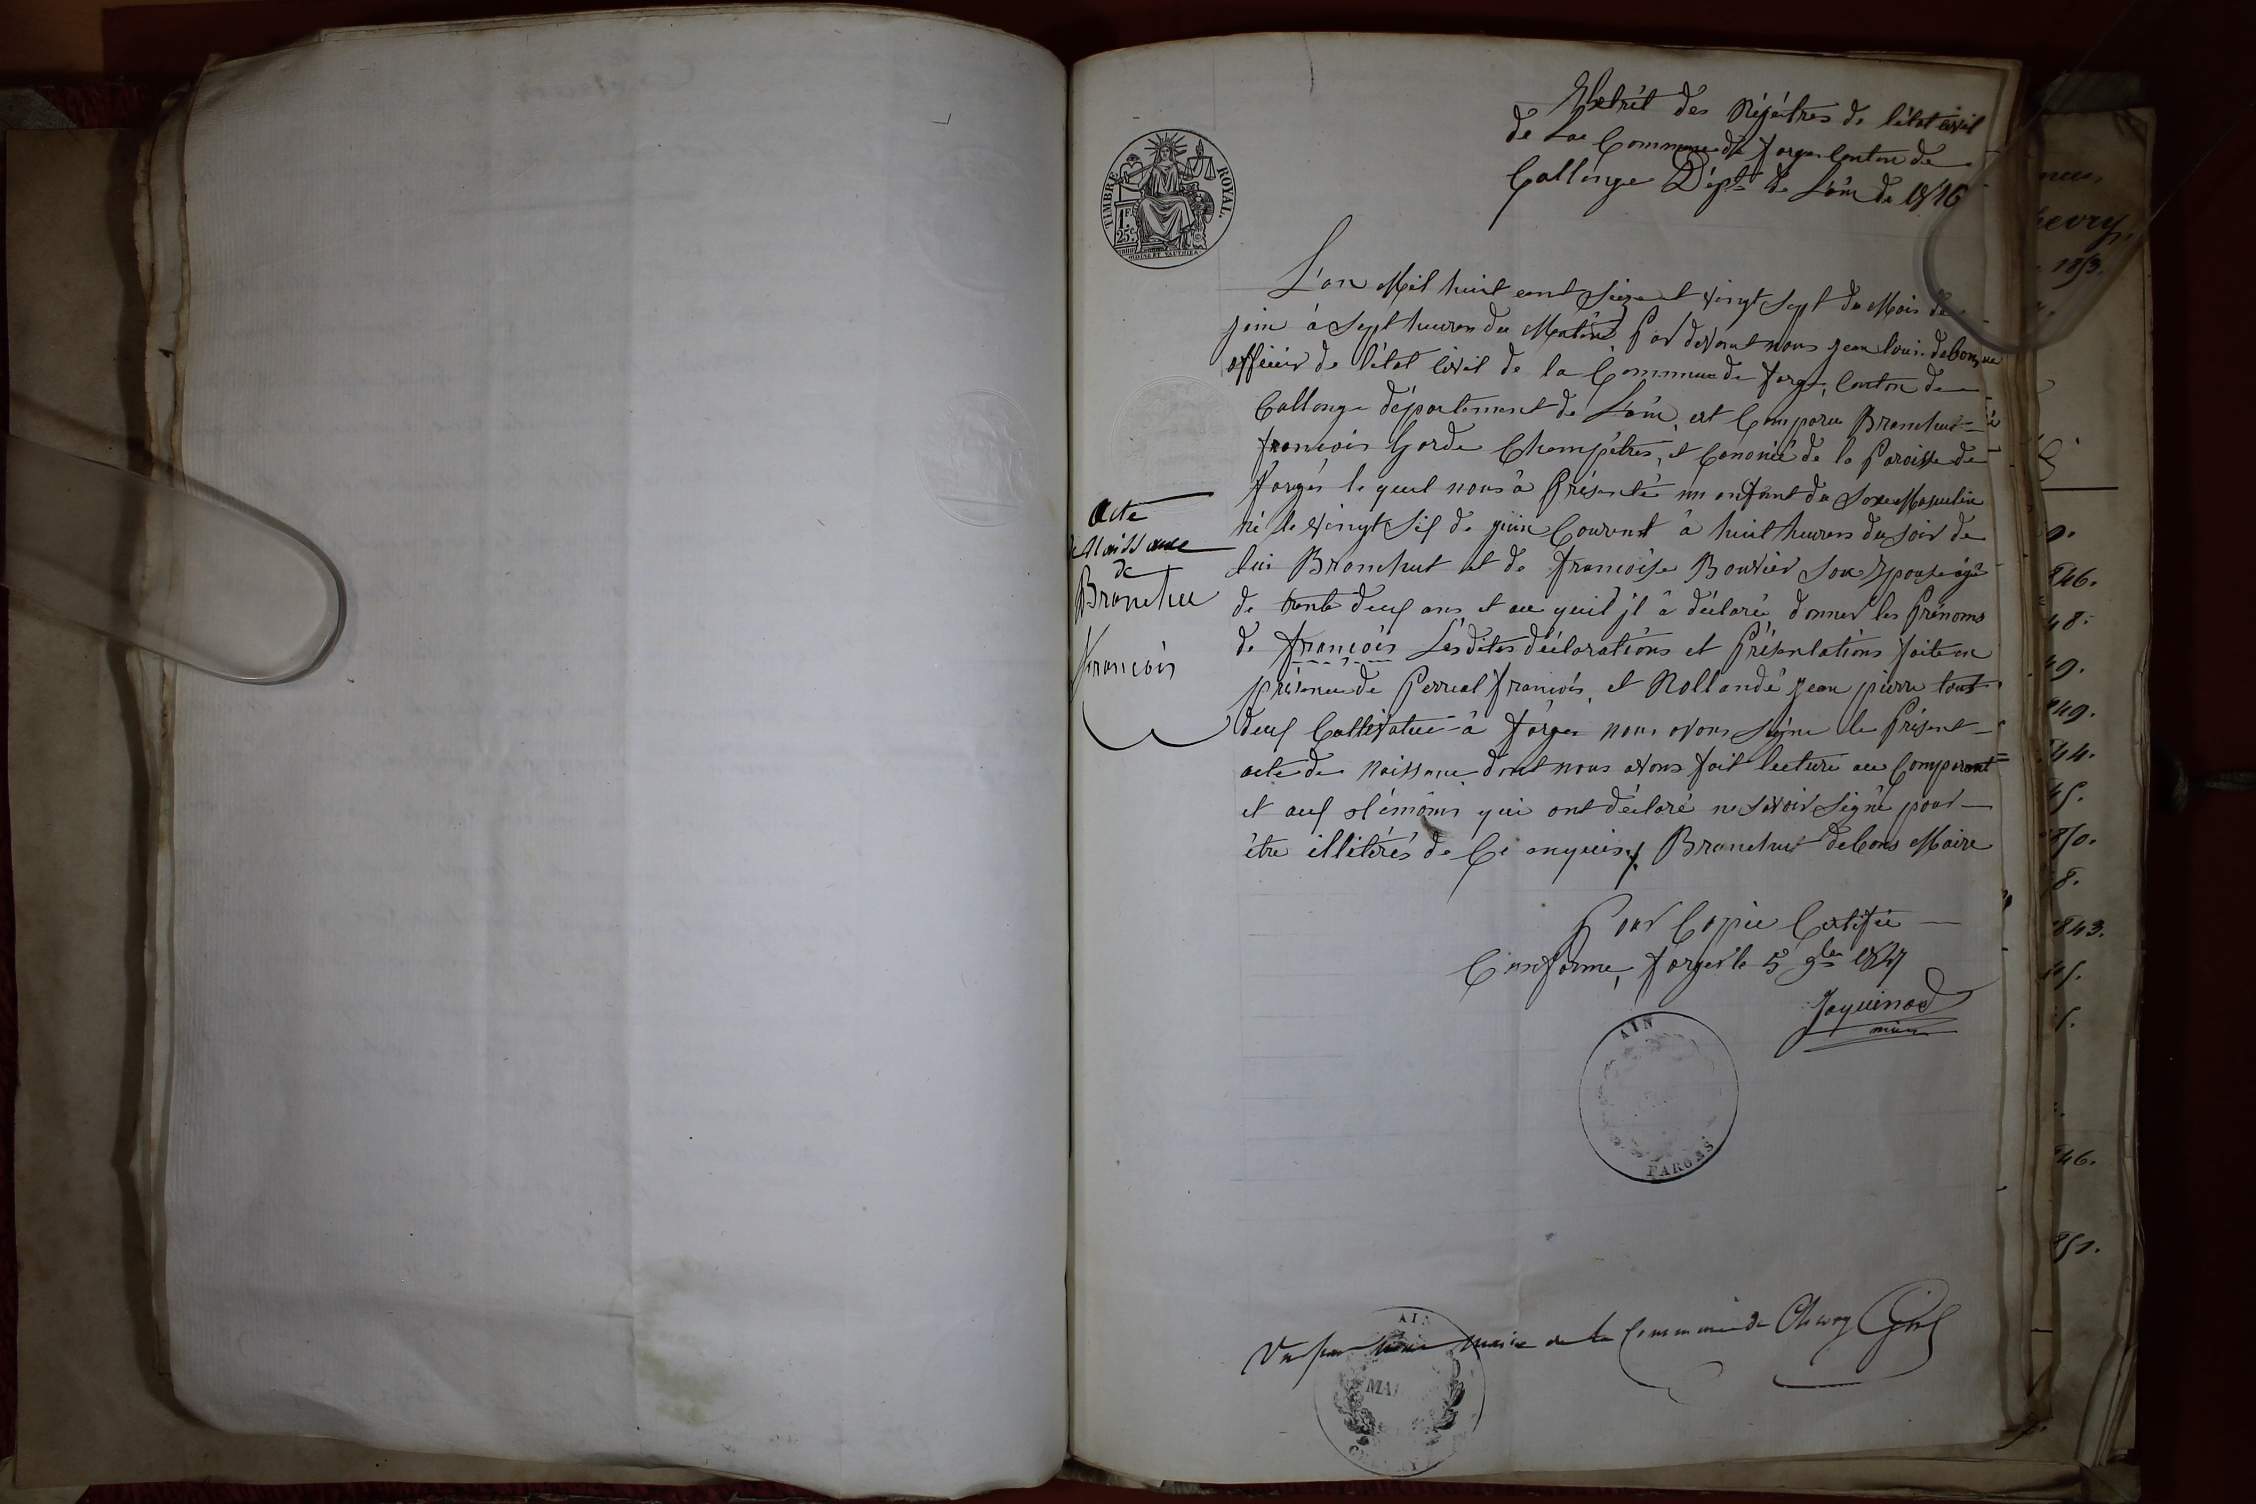 Extrèt des Régitres de l'état civil
de La Commune de farges Conton de
Collonge Dépt de L'ain de 1816
TIMBRE ROYAL.
1F.
25c.
L'an Mil huit cent Seize et vingt Sept du Mois de
juin à Sept heures du Matin Par devant nous jean louis debons
officier de l'état Civil de la Commune de farge, Conton de
Collonge département de L'ain, est Comparu Branchut
françois Garde Champêtres, et de la Paroisse de
farges le quel nous à Présenté un enfant du Sexe Masculin
né le vingt Six de juin Courant à huit heures du soir de
lui Branchut et de françoise Bouvier Son Epouse âgé
de trente deux ans et au quil jl â déclaré donner les Prénoms
de françois Lesdites déclarations et Présentations faite en
présence de Perreal françois, et Rollandé jean pierre tout
deux Cultivateur à farges nous avons Signe le Présent
acte de Naissance dont nous avons fait lecture au Comparant
et aux témoins qui ont déclaré ne savoir Signé pour
être illiterés de Ce enquis, Branchut debons Maire
acte
de Naissance
de
Branchu
françois
Pour Copie Certifié
Conforme, farges le 5 9bre 1847
Jaquinod
maire
AIN
FARGES
Vu par nous maire de la Commune de Chevry Girod
AIN
MAI